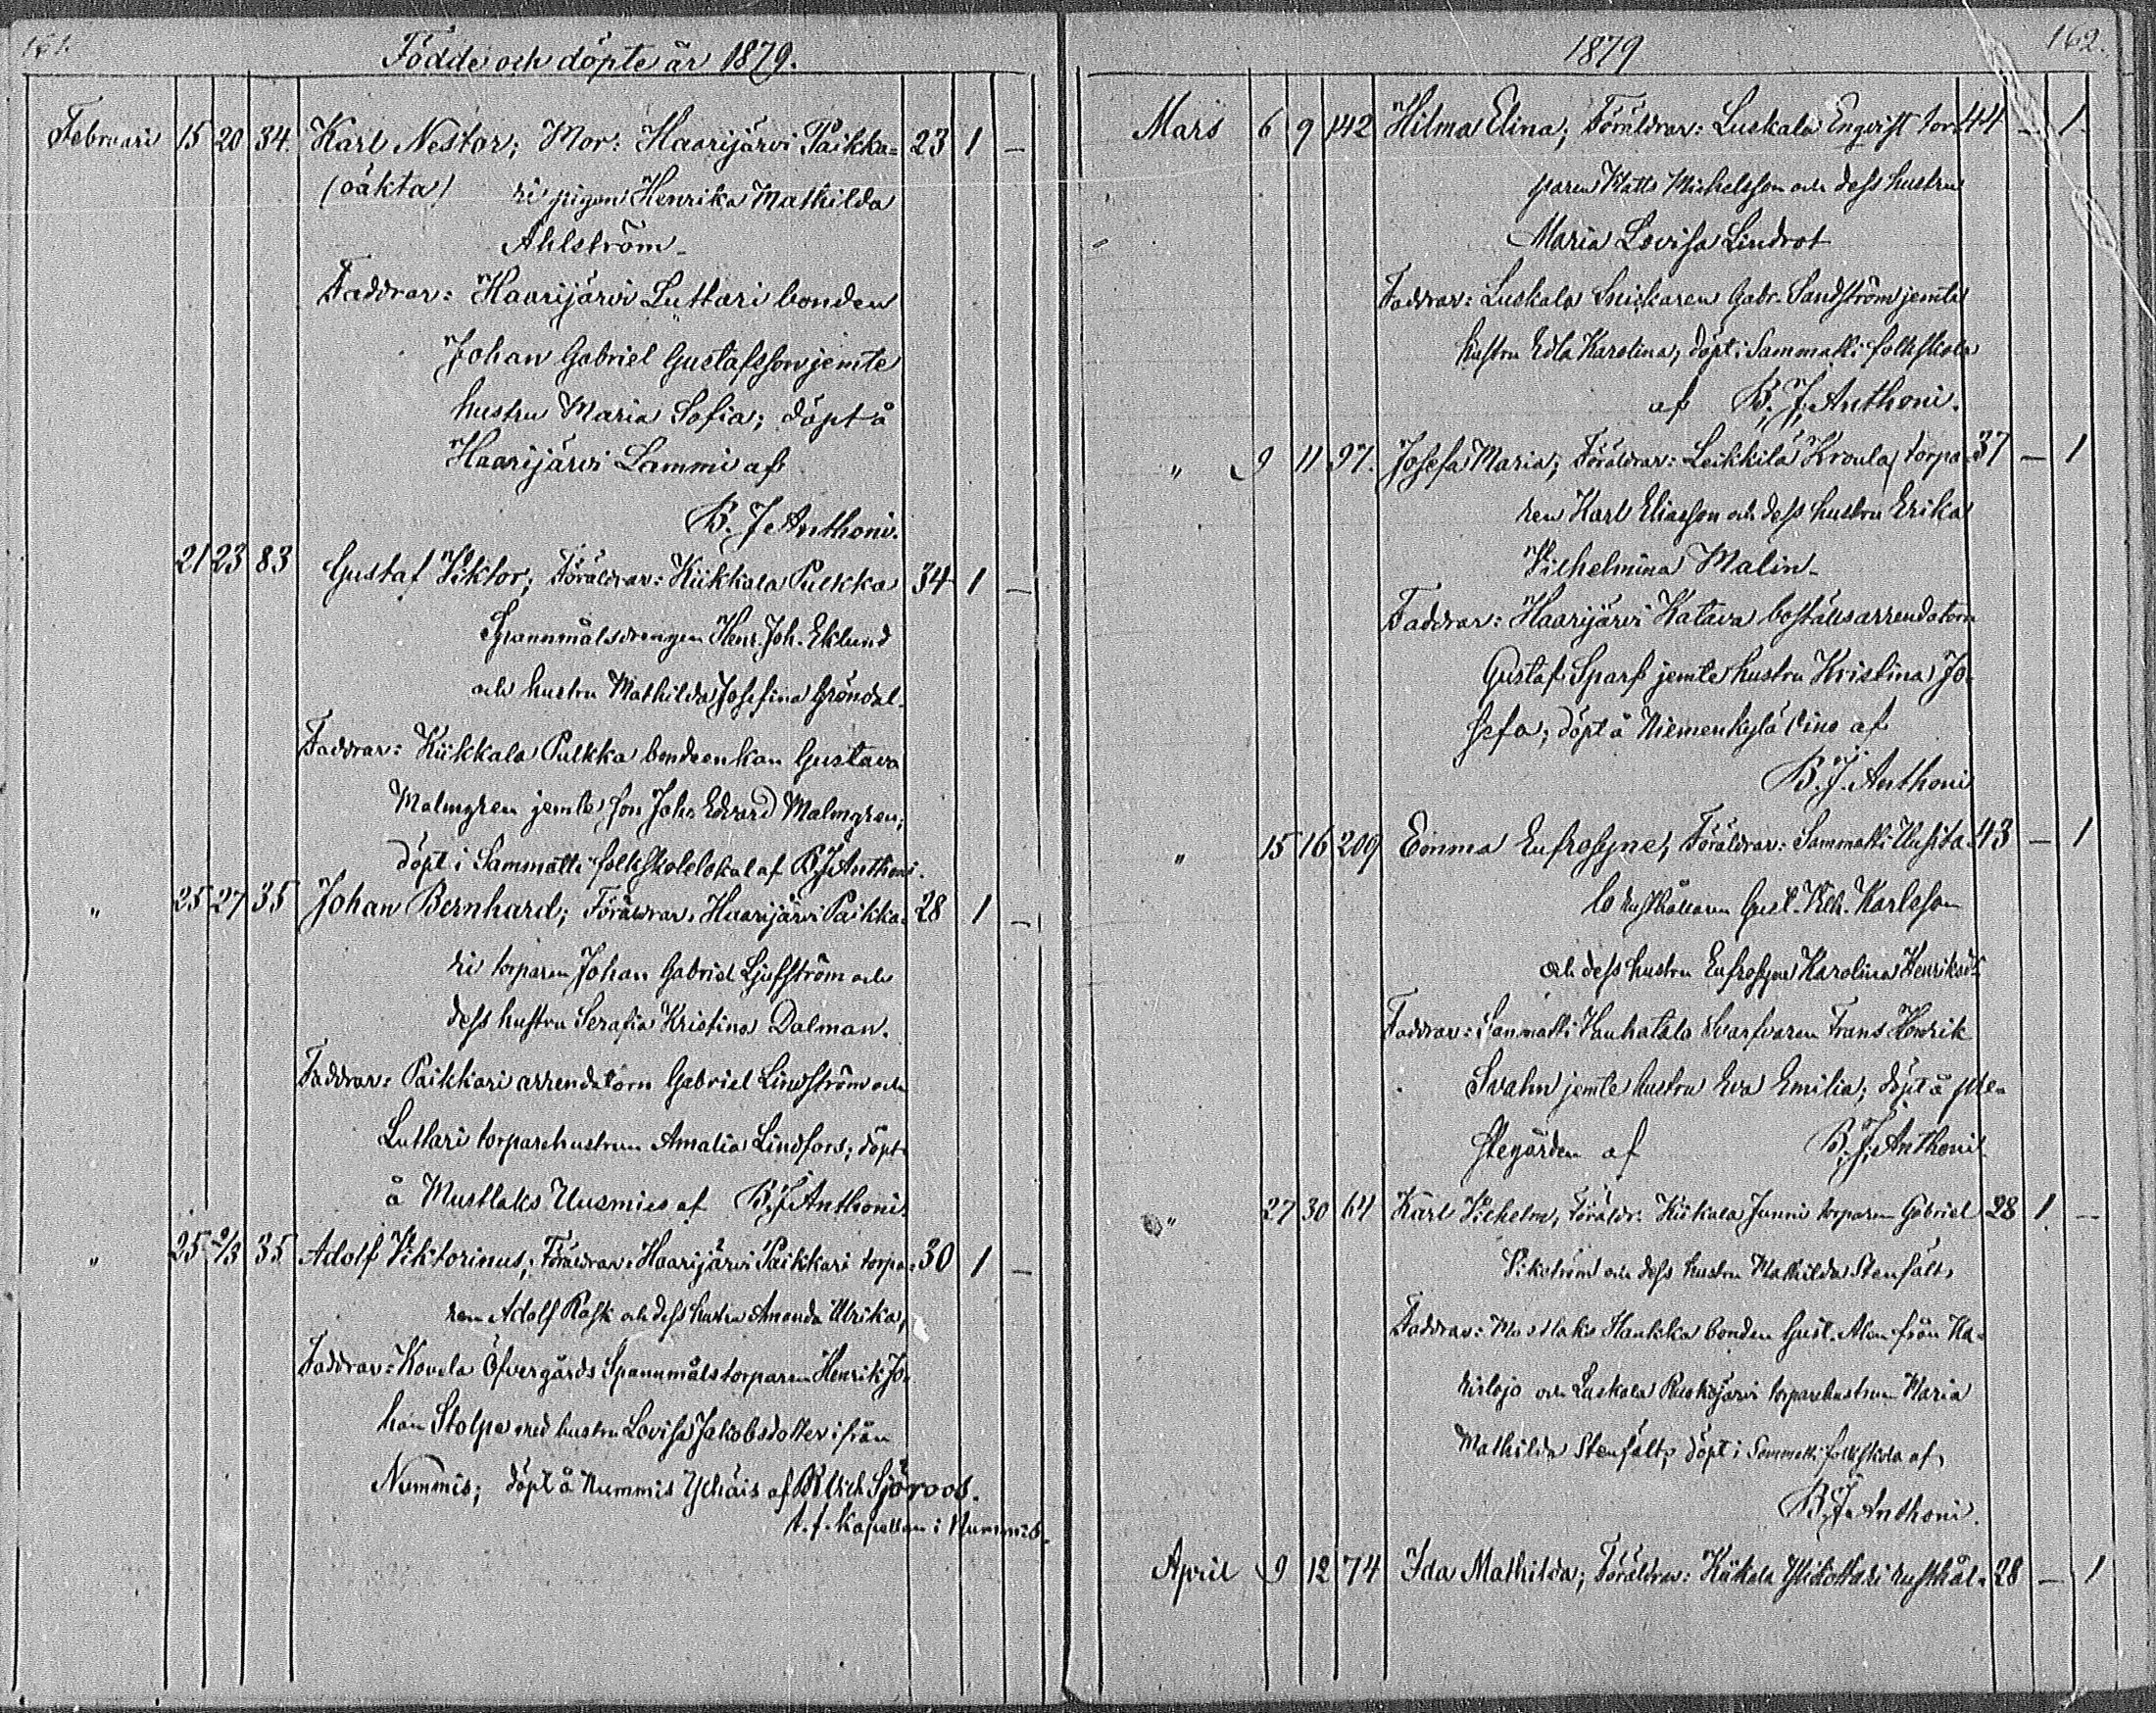 161.
Födde och döpte år 1879.
Februari 15 20 34. Karl Nestor; Mor: Haarijärvi Paikka= 23 1 —
(oäkta) ri pigan Henrika Mathilda
Ahlström.
Faddrar: Haarijärvi Luttari bonden
Johan Gabriel Gustafsson jemte
hustru Maria Sofia; döpt å
Haarijärvi Lammi af
B. J. Anthoni.
21 23 83 Gustaf Viktor; Föräldrar: Kiikkala Pulkka 34 1 —
Spannmålsdrengen Henr. Joh. Eklund
och hustru Mathilda Josefina Gröndal.
Faddrar: Kiikkala Pulkka bondeenkan Gustava
Malmgren jemte son Joh. Edvard Malmgren;
döpt i Sammatti folkskolelokal af B. J. Anthoni.
" 25 27 35 Johan Bernhard; Föräldrar: Haarijärvi Paikka= 28 1 —
ri torparen Johan Gabriel Ljufström och
dess hustru Serafia Kristina Dalman.
Faddrar: Paikkari arrendatorn Gabriel Lindström och
Luttari torparehustrun Amalia Lindfors; döpt
å Mustlaks Uusmies af B. J. Anthoni.
" 25 2/3 35 Adolf Viktorinus; Föräldrar: Haarijärvi Paikkari torpa= 30 1 —
ren Adolf Rask och dess hustru Amanda Ulrika,
Faddrar: Kovela Öfvergårds Spannmålstorparen Henrik Jo=
han Stolpe med hustru Lovisa Jakobsdotter ifrån
Nummis; döpt å Nummis af Sjöroos.
t. f. Kapellan i Nummis.
1879
162.
Mars 6 9 142 Hilma Elina; Föräldrar: Luskala Engvist tor= 44 — 1
paren Matts Michelsson och dess hustru
Maria Lovisa Lindrot
Faddrar: Luskala Snickaren Gabr. Sandström jemte
hustru Edla Karolina; döpt i Sammatti folkskola
af B. J. Anthoni.
" 9 11 97. Josefa Maria; Föräldrar: Leikkilä Kroula torpa= 37 — 1
ren Karl Eliasson och dess hustru Erika
Vilhelmina Malin.
Faddrar: Haarijärvi Katava boställsarrendatorn
Gustaf Sparf jemte hustru Kristina Jo=
sefa; döpt å Niemenkylä af
B. J. Anthoni
" 15 16 209 Emma Eufrosyne; Föräldrar: Sammatti Uusita= 43 — 1
lo rusthållaren Gust. Vilh. Karlsson
och dess hustru Eufrosyne Karolina Henriksdr
Faddrar: Sammatti Vanhatalo Svarfvaren Frans Henrik
Svahn jemte hustru Eva Emilia; döpt å pre=
stegården af B. J. Anthoni.
" 27 30 64 Karl Vilhelm; Föräldr: Kiikala Junni torparen Gabriel 28 1 —
Vikström och dess hustru Mathilda Stenfält,
Faddrar: Mustlaks Haukka bonden Gust. Alen från Ka=
rislojo och Luskala Ruokojärvi torparehustrun Maria
Mathilda Stenfält; döpt i Sammatti folkskola af
B. J. Anthoni.
April 9 12 74 Ida Mathilda; Föräldrar: Kiikala rusthål= 28 — 1